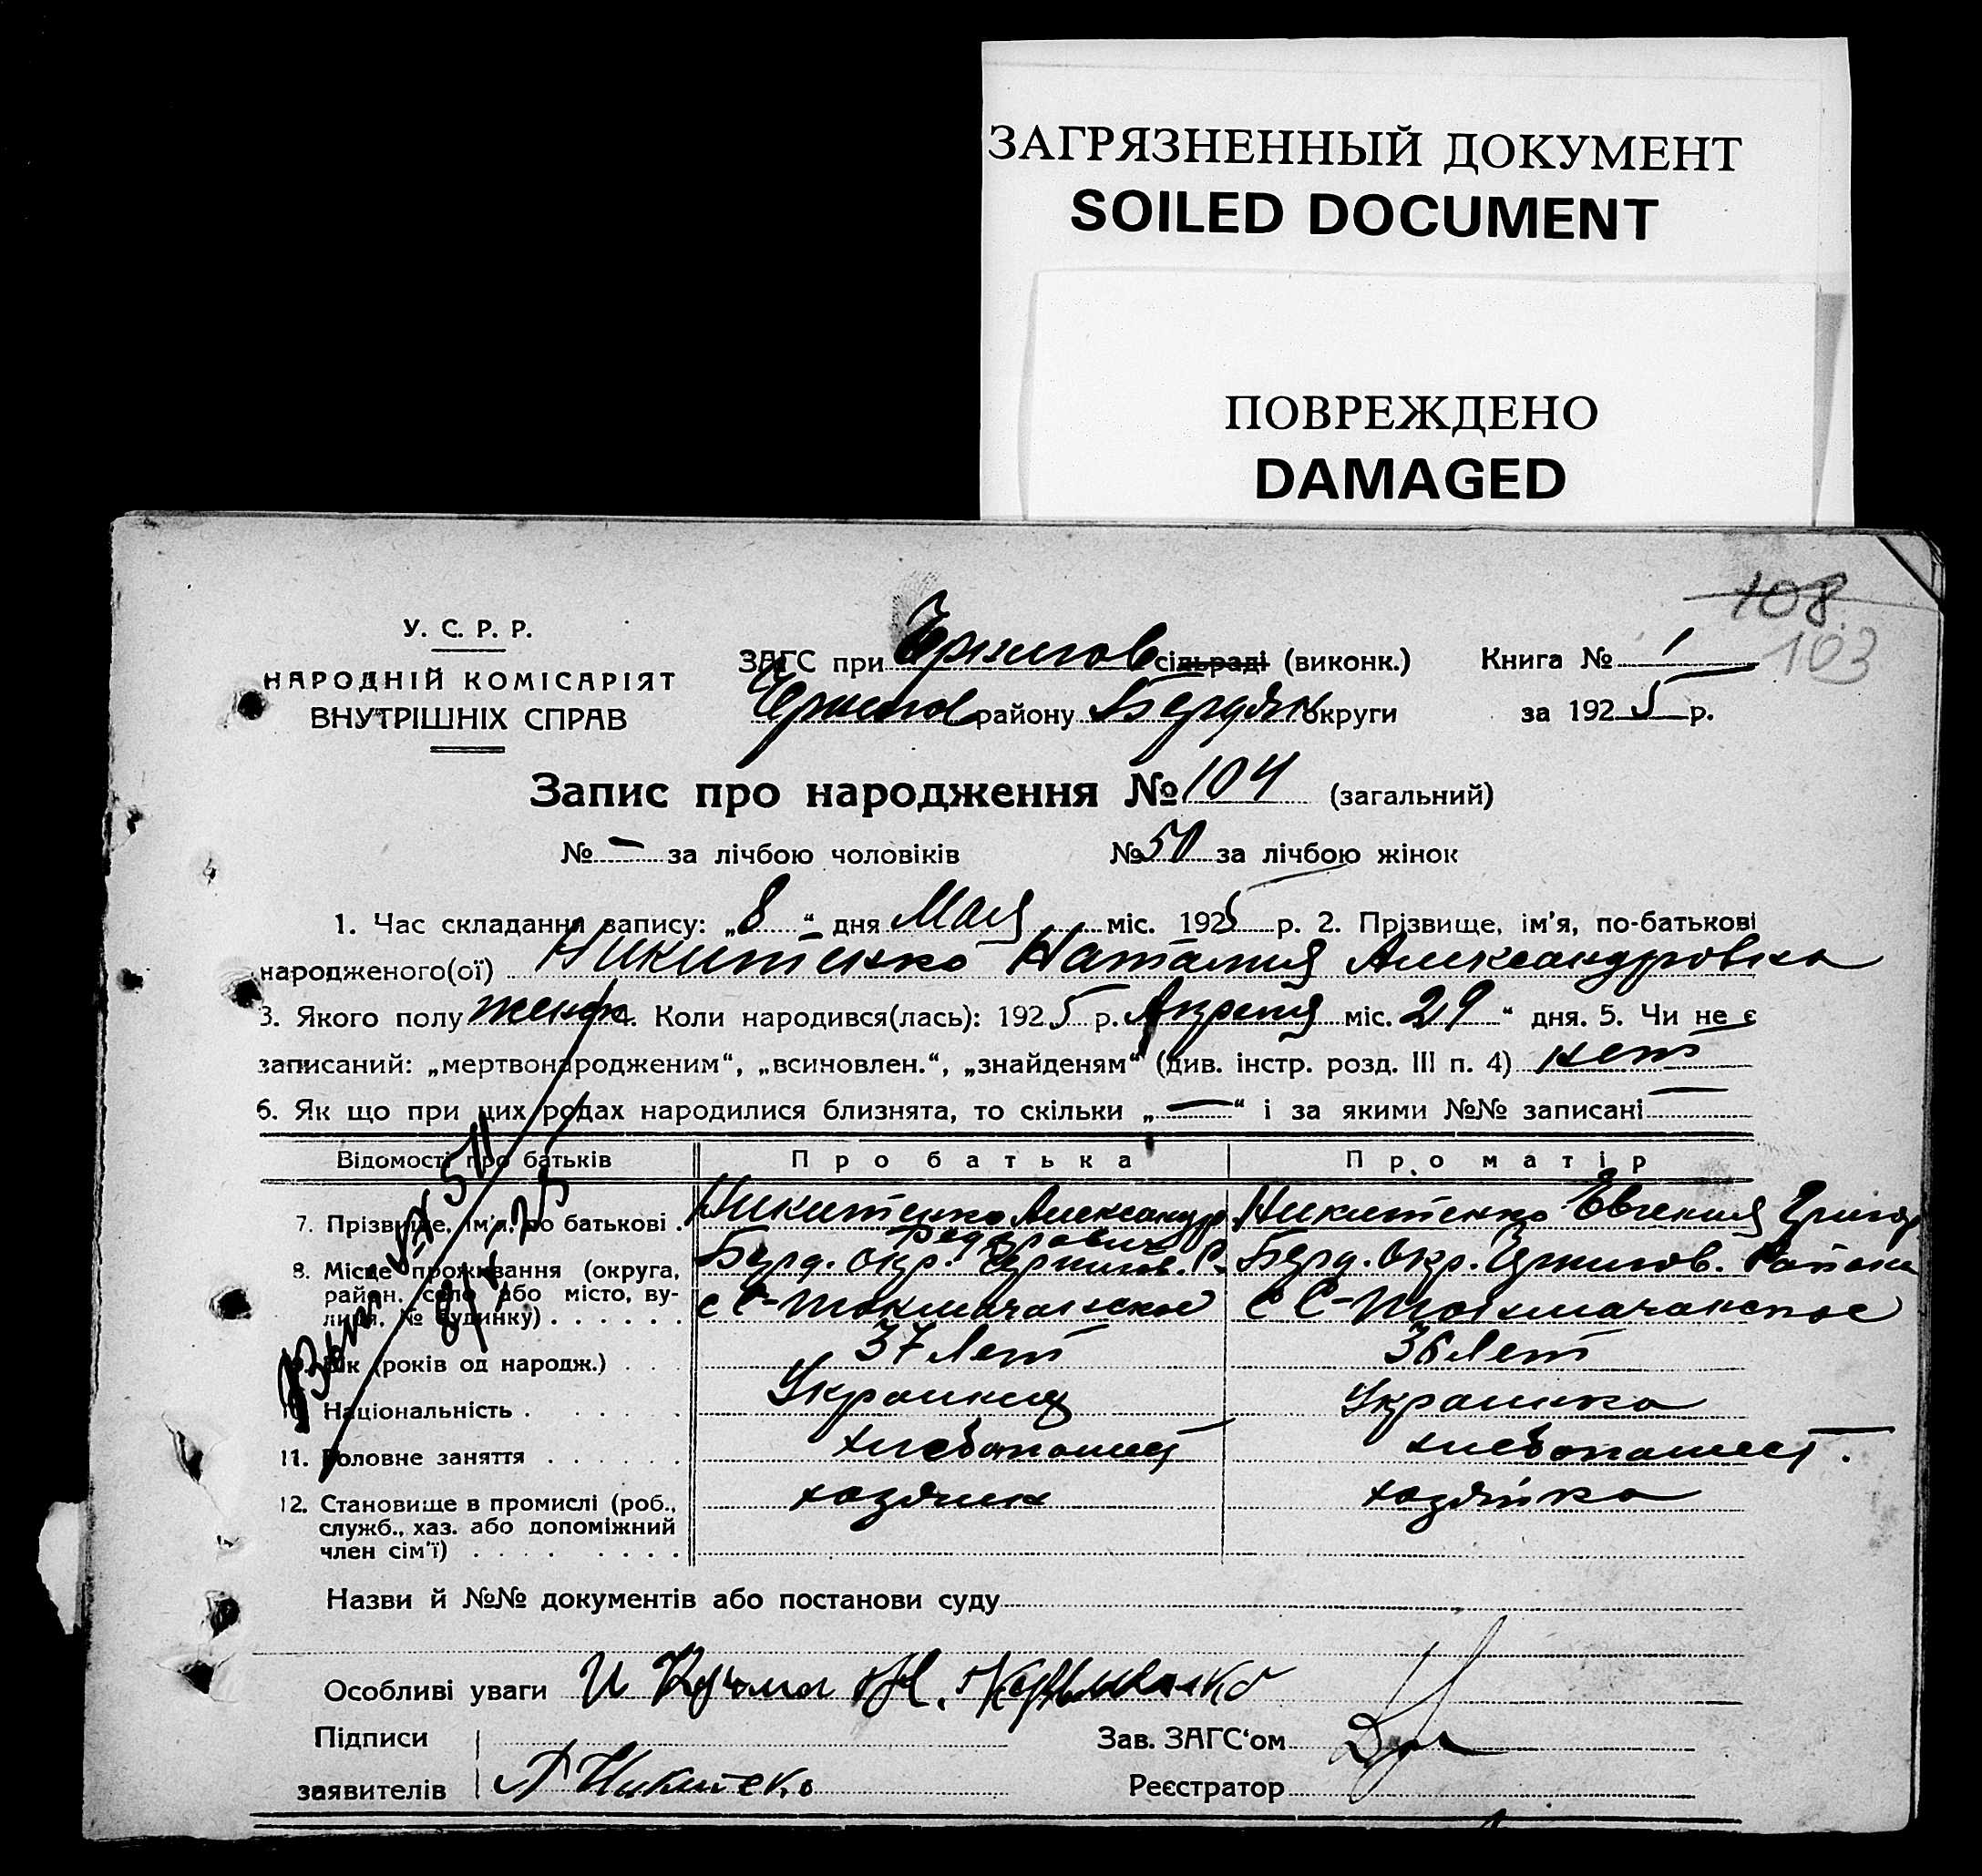 ЗАГРЯЗНЕННЫЙ ДОКУМЕНТ
SOILED DOCUMENT
ПОВРЕЖДЕНО
DAMAGED
108
103
У. С. Р. Р.
НАРОДНІЙ КОМІСАРІЯТ
ВНУТРІШНІХ СПРАВ
ЗАГС при Чернигов сільраді (виконк.) Книга № 1
району Бердян округи за 1925 р.
Запис про народження № 104 (загальний)
№ — за лічбою чоловіків № 50 за лічбою жінок
1. Час складання запису: „8“ дня Мая міс. 1925 р. 2. Прізвище, ім'я, по-батькові
народженого(ої) Никитенко Наталия Александровна
3. Якого полу женск 4. Коли народився(лась): 1925 р. Апреля міс. 29 “ дня. 5. Чи не є
записаний: „мертвонародженим“, „всиновлен.“, „знайденям“ (див. інстр. розд. III п. 4) нет
6. Як що при цих родах народилися близнята, то скільки „—“ і за якими №№ записані —
Відомості про батьків Про батька Про матір
7. Прізвище, ім'я, по батькові . Никитенко Александр Федорович Никитенко Евгения Григор
8. Місце проживання (округа, район, село або місто, вулиця, № будинку) . . . . . . Берд. Окр. Чернигов. Р. Берд. Окр. Чернигов. Района
с С-Токмачанское с С-Токмачанское
9. Вік (років од народж.) . . . 37 лет 36 лет
10. Національність . . . . . . Украинец Украинка
11. Головне заняття . . . . . . хлебопашец хлебопашец.
12. Становище в промислі (роб., служб., хаз. або допоміжний член сім'ї) . . . . . . . . хозяин хозяйка
Назви й №№ документів або постанови суду
Особливі уваги
Підписи
заявителів Никитенко
Зав. ЗАГС'ом
Реєстратор